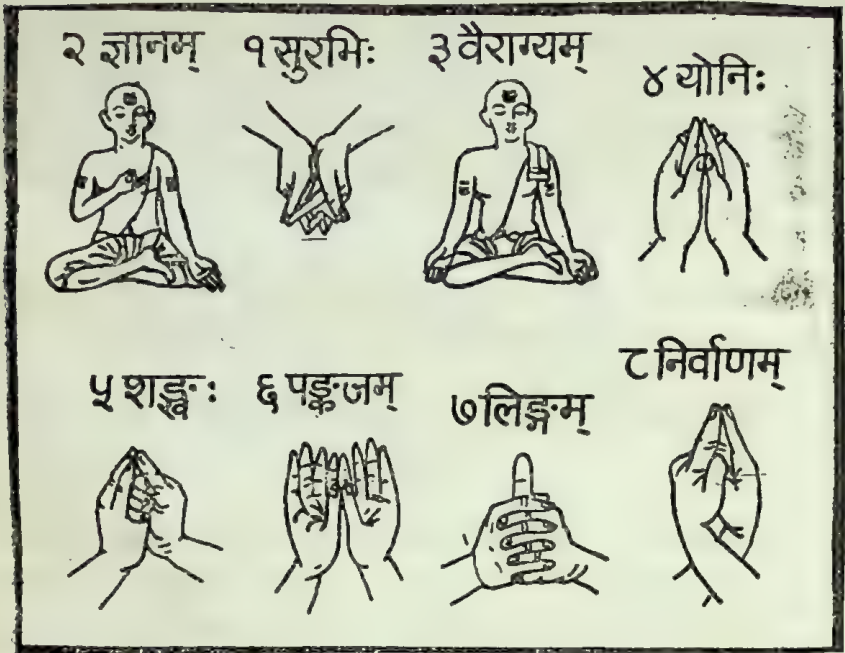 २ ज्ञानम्
१ सुरभिः
३ वैराग्यम्
४ योनिः
५ शङ्खः
६ पङ्कजम्
७ लिङ्गम्
८ निर्वाणम्